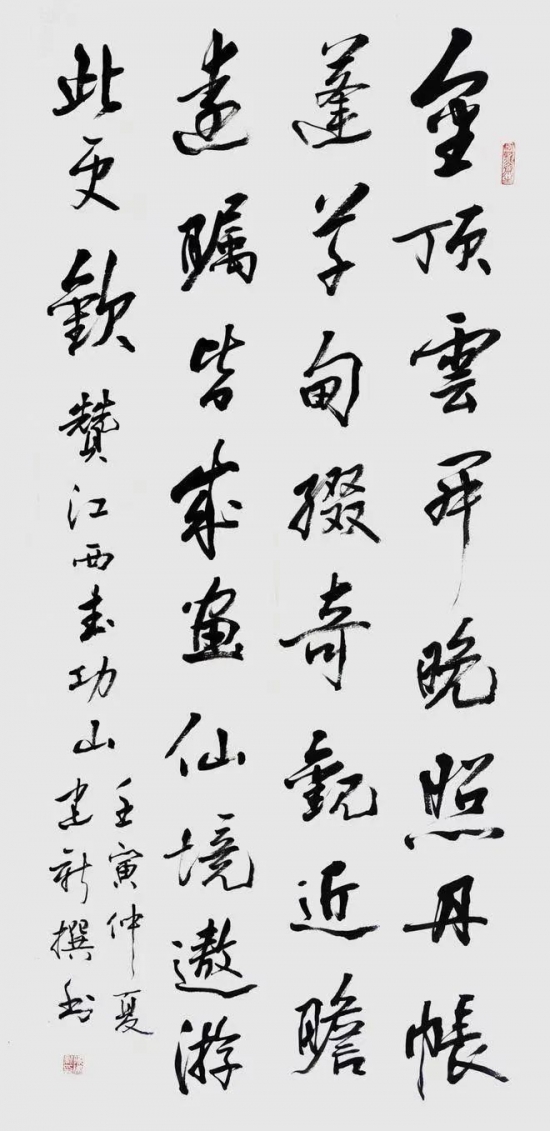 金顶雲开晚照丹帐
蓬草甸缀奇觀近瞻
远瞩皆成画仙境遨游
此更歡
赞江西武功山
壬寅仲夏
建新撰书